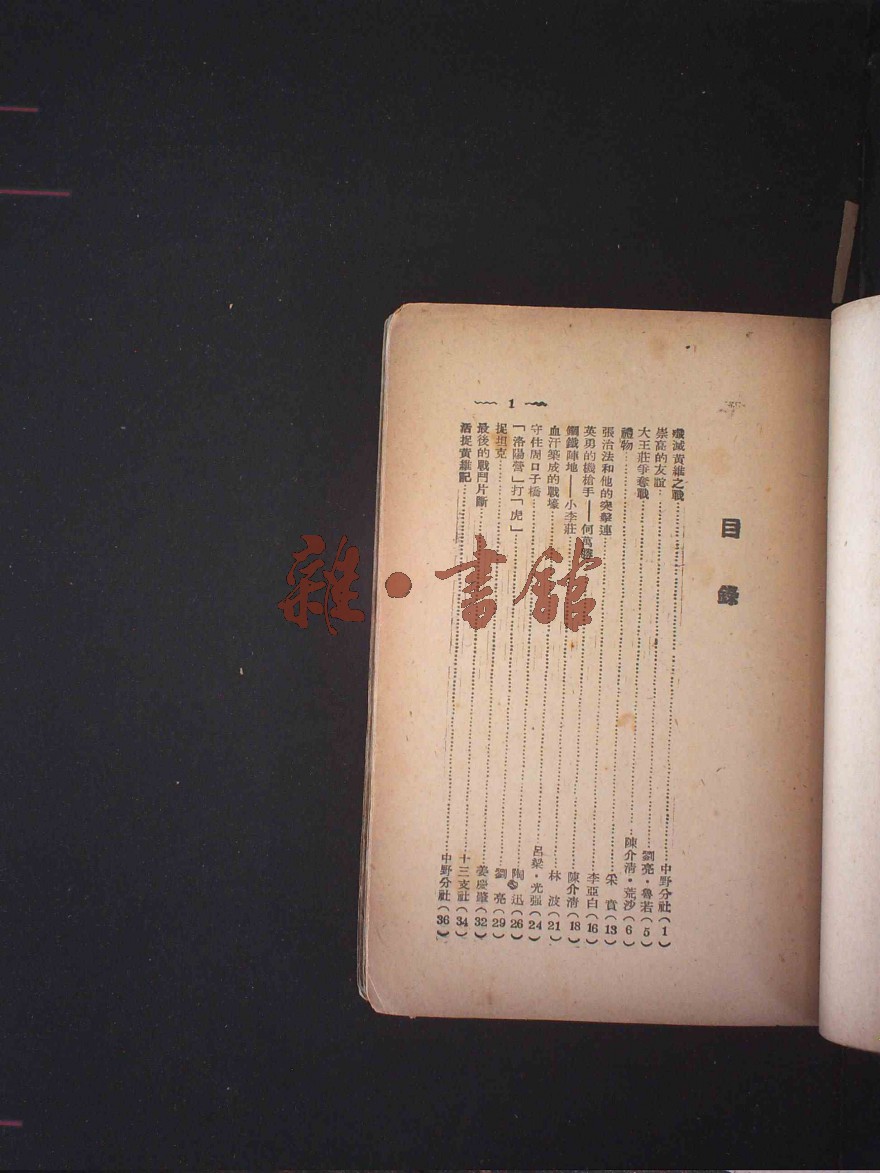 目錄
殲滅黃維之戰……中野分社(1)
崇高的友誼……劉亮・魯若(5)
大王莊爭奪戰……陳介清・荒沙(6)
禮物……采 賁(13)
張治法和他的突擊連……李亞白(16)
英勇的機槍手——何萬勝……陳介清(18)
鋼鐵陣地——小李莊……林 波(21)
血汗築成的戰壕……呂梁・光强(24)
守住周口子橋……陶 迅(26)
「洛陽營」打「虎」……劉 亮(29)
捉坦克……姜慶肇(32)
最後的戰鬥片斷……十三支社(34)
活捉黃維記……中野分社(36)
1
雜・書館